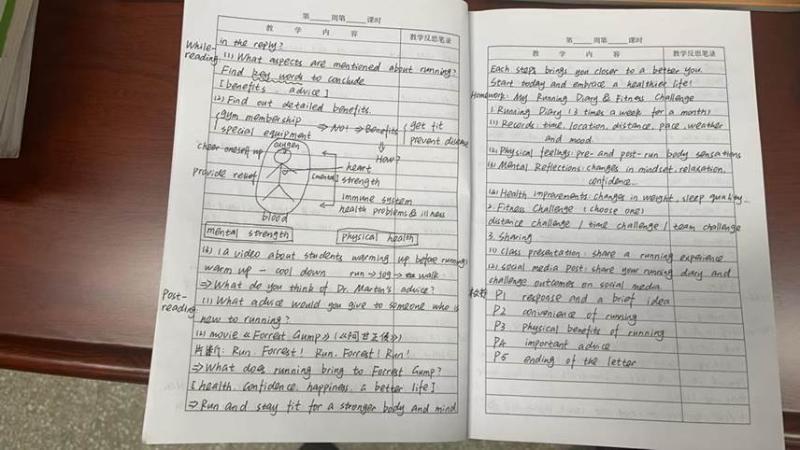 第____周第____课时
教 学 内 容 教学反思笔录
While-reading:
in the reply?
(1) What aspects are mentioned about running?
Find key words to conclude
[benefits, advice]
(2) Find out detailed benefits.
gym membership
special equipment ⇒ No! ⇒ Benefits { get fit
prevent disease
How?
cheer oneself up
oxygen
provide relief
heart
[mental] strength
immune system
health problems & illness
blood
mental strength physical health
(3) (a video about students warming up before running)
warm up — cool down run → jog → walk
⇒ What do you think of Dr. Martin's advice?
Post-reading:
(1) What advice would you give to someone who is
new to running?
(2) movie 《Forrest Gump》 (《阿甘正传》)
片段: Run, Forrest! Run, Forrest! Run!
⇒ What does running bring to Forrest Gump?
[health, confidence, happiness, a better life]
⇒ Run and stay fit for a stronger body and mind
第____周第____课时
教 学 内 容 教学反思笔录
Each steps brings you closer to a better you.
Start today and embrace a healthier life!
Homework: My Running Diary & Fitness Challenge
1. Running Diary (3 times a week for a month)
(1) Records: time, location, distance, pace, weather
and mood.
(2) Physical feelings: pre- and post-run body sensations
(3) Mental Reflections: changes in mindset, relaxation,
confidence...
(4) Health improvements: changes in weight, sleep quality...
2. Fitness Challenge (choose one)
distance challenge / time challenge / team challenge
3. Sharing
(1) class presentation: share a running experience
(2) Social media post: share your running diary and
challenge outcomes on social media.
板书
P1 response and a brief idea
P2 convenience of running
P3 physical benefits of running
P4 important advice
P5 ending of the letter